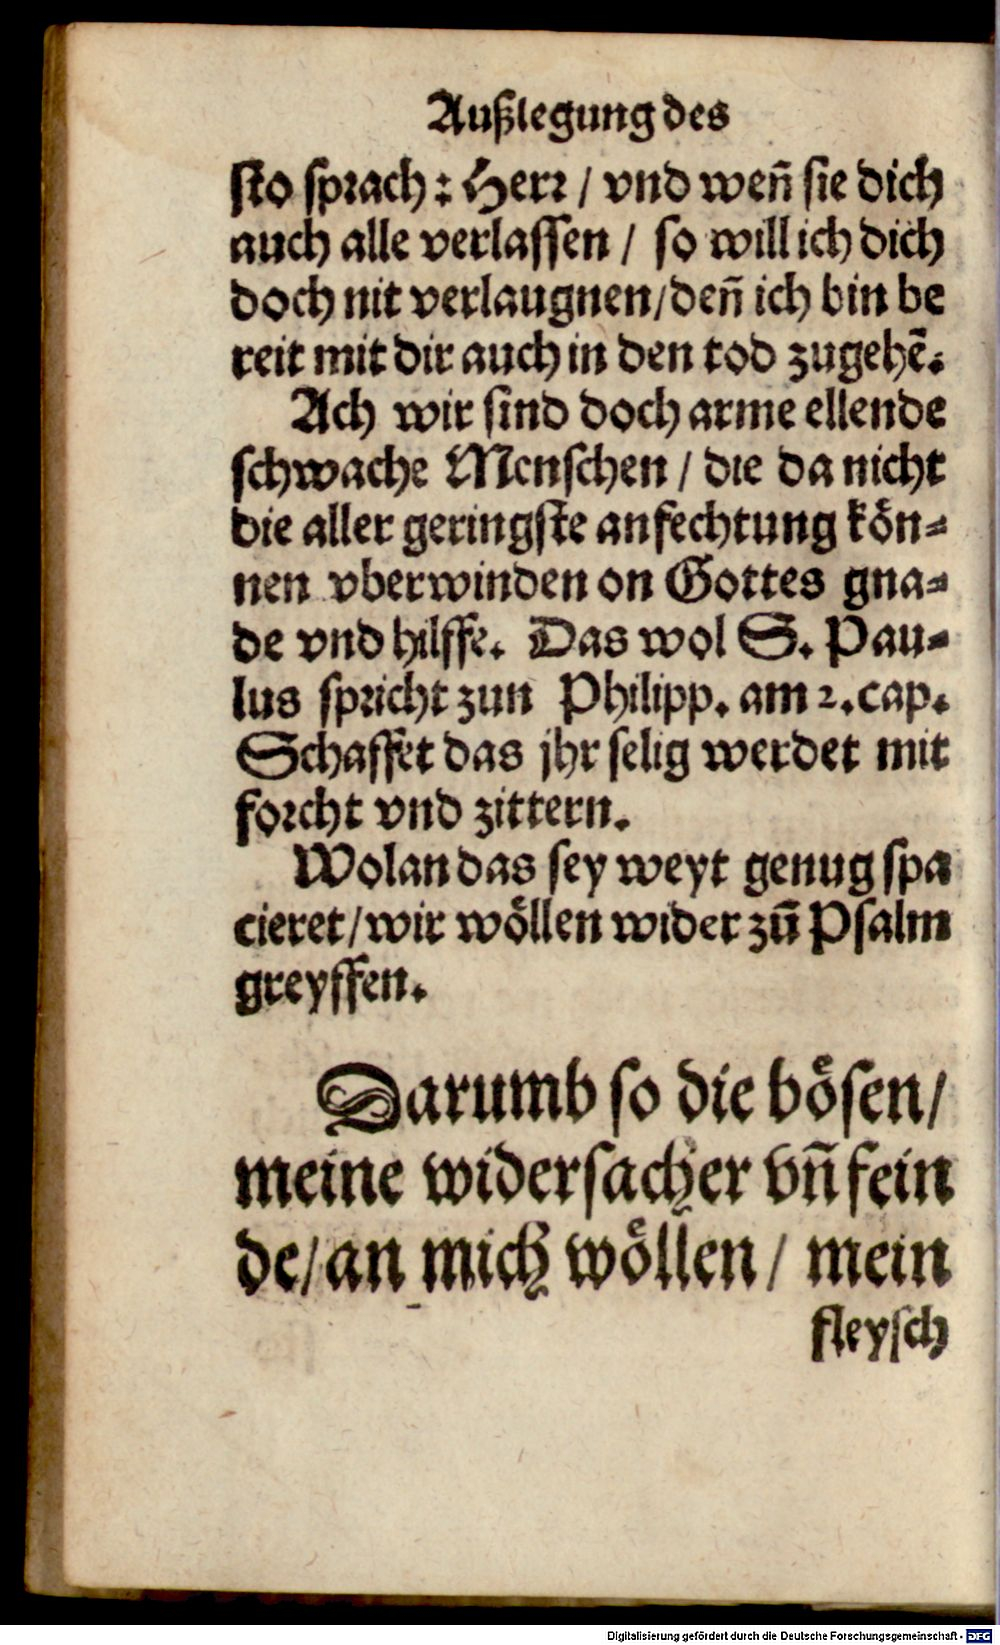 Außlegung des
sto sprach: Herr / vnd weñ sie dich
auch alle verlassen / so will ich dich
doch nit verlaugnen/deñ ich bin be
reit mit dir auch in den tod zugehẽ.
Ach wir sind doch arme ellende
schwache Menschen / die da nicht
die aller geringste anfechtung kön-
nen vberwinden on Gottes gna-
de vnd hilffe. Das wol S. Pau-
lus spricht zun Philipp. am 2. cap.
Schaffet das jhr selig werdet mit
forcht vnd zittern.
Wolan das sey weyt genug spa
cieret/wir wöllen wider zũ Psalm
greyffen.
Darumb so die bösen/
meine widersacher vñ fein
de/an mich wöllen / mein
fleysch
Digitalisierung gefördert durch die Deutsche Forschungsgemeinschaft - DFG